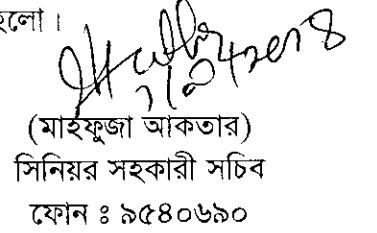 হলো।
(মাহফুজা আকতার)
সিনিয়র সহকারী সচিব
ফোন ঃ ৯৫৪০৬৯০